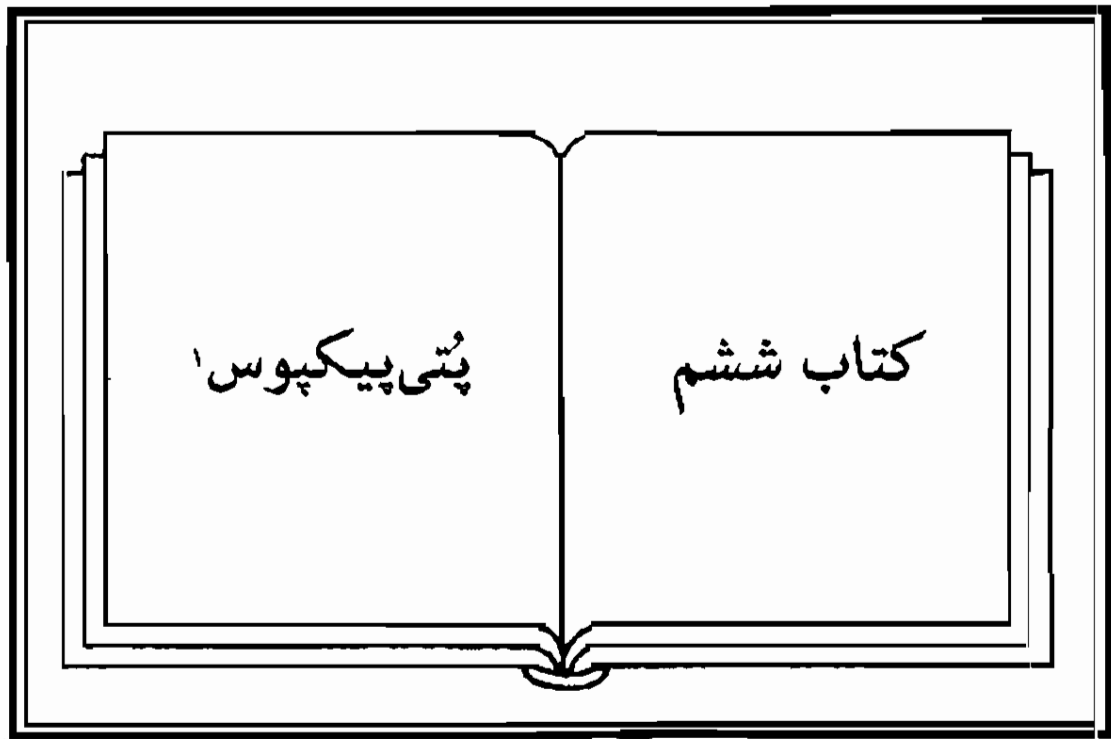 کتاب ششم
پُتی‌پیکپوس۱